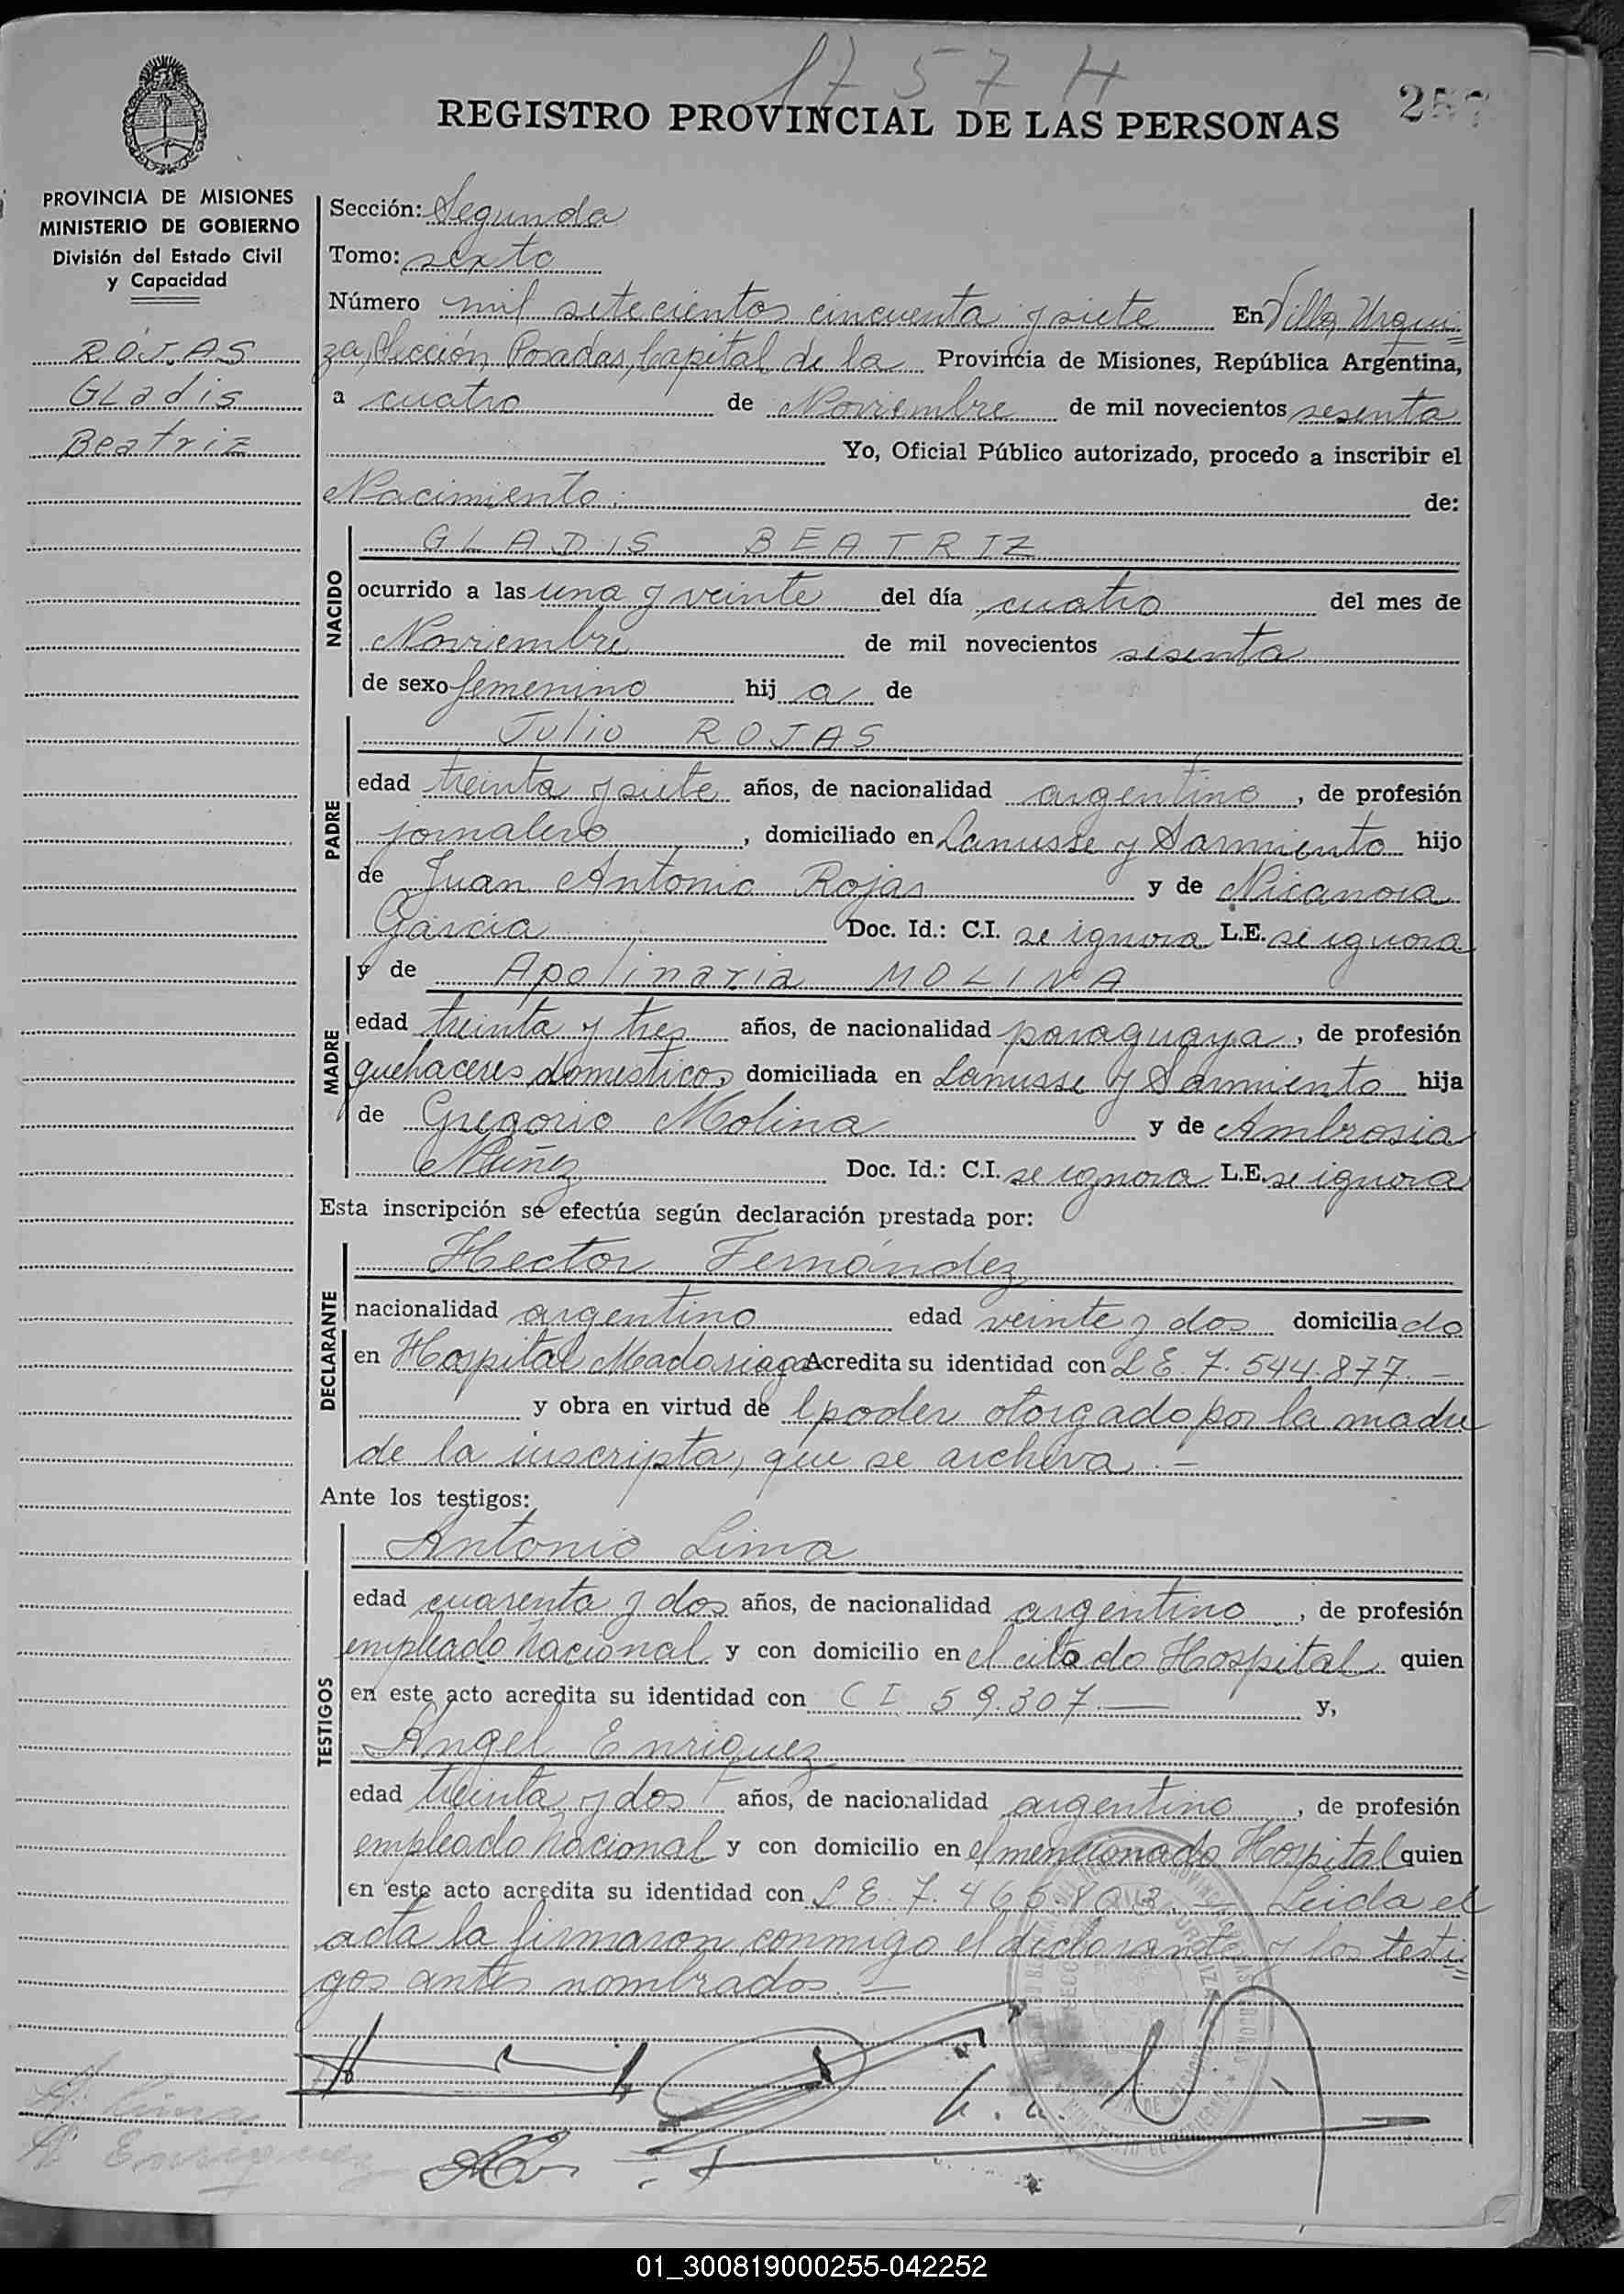 1757 H
REGISTRO PROVINCIAL DE LAS PERSONAS
PROVINCIA DE MISIONES
MINISTERIO DE GOBIERNO
División del Estado Civil
y Capacidad
ROJAS
GLadis
Beatriz
Sección: Segunda
Tomo: sexto
Número mil setecientos cincuenta y siete En Villa Urqui=
za, Sección, Posadas, Capital de la Provincia de Misiones, República Argentina,
a cuatro de Noviembre de mil novecientos sesenta
Yo, Oficial Público autorizado, procedo a inscribir el
Nacimiento. de:
NACIDO
GLADIS BEATRIZ
ocurrido a las una y veinte del día cuatro del mes de
Noviembre de mil novecientos sesenta
de sexo femenino hija de
PADRE
Julio ROJAS
edad treinta y siete años, de nacionalidad argentino, de profesión
jornalero, domiciliado en Lanusse y Sarmiento hijo
de Juan Antonio Rojas y de Nicanora
Garcia Doc. Id.: C.I. se ignora L.E. se ignora
MADRE
y de Apolinaria MOLINA
edad treinta y tres años, de nacionalidad paraguaya, de profesión
quehaceres domesticos, domiciliada en Lanusse y Sarmiento hija
de Gregorio Molina y de Ambrosia
Núñez Doc. Id.: C.I. se ignora L.E. se ignora
Esta inscripción se efectúa según declaración prestada por:
DECLARANTE
Hector Fernández
nacionalidad argentino edad veinte y dos domiciliado
en Hospital Madariaga Acredita su identidad con L E 7.544.877.—
y obra en virtud de l poder otorgado por la madre
de la inscripta, que se archiva.—
Ante los testigos:
TESTIGOS
Antonio Lima
edad cuarenta y dos años, de nacionalidad argentino, de profesión
empleado nacional y con domicilio en el citado Hospital quien
en este acto acredita su identidad con C I 59.307.— y,
Angel Enriquez
edad treinta y dos años, de nacionalidad argentino, de profesión
empleado nacional y con domicilio en el mencionado Hospital quien
en este acto acredita su identidad con L E. 7.466.803.— Leida el
acta la firmaron conmigo el declarante y los testi=
gos antes nombrados.—
A. Lima
A. Enriquez
01_300819000255-042252